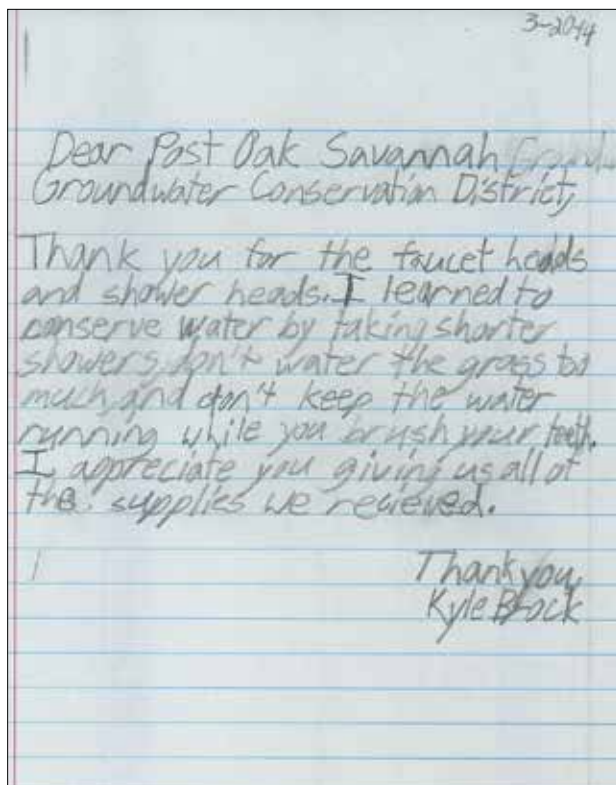 3-2014
Dear Post Oak Savannah Grounds
Groundwater Conservation District,
Thank you for the faucet heads
and shower heads. I learned to
conserve water by taking shorter
showers, don't water the grass to
much, and don't keep the water
running while you brush your teeth.
I appreciate you giving us all of
the supplies we recieved.
Thank you,
Kyle Brock